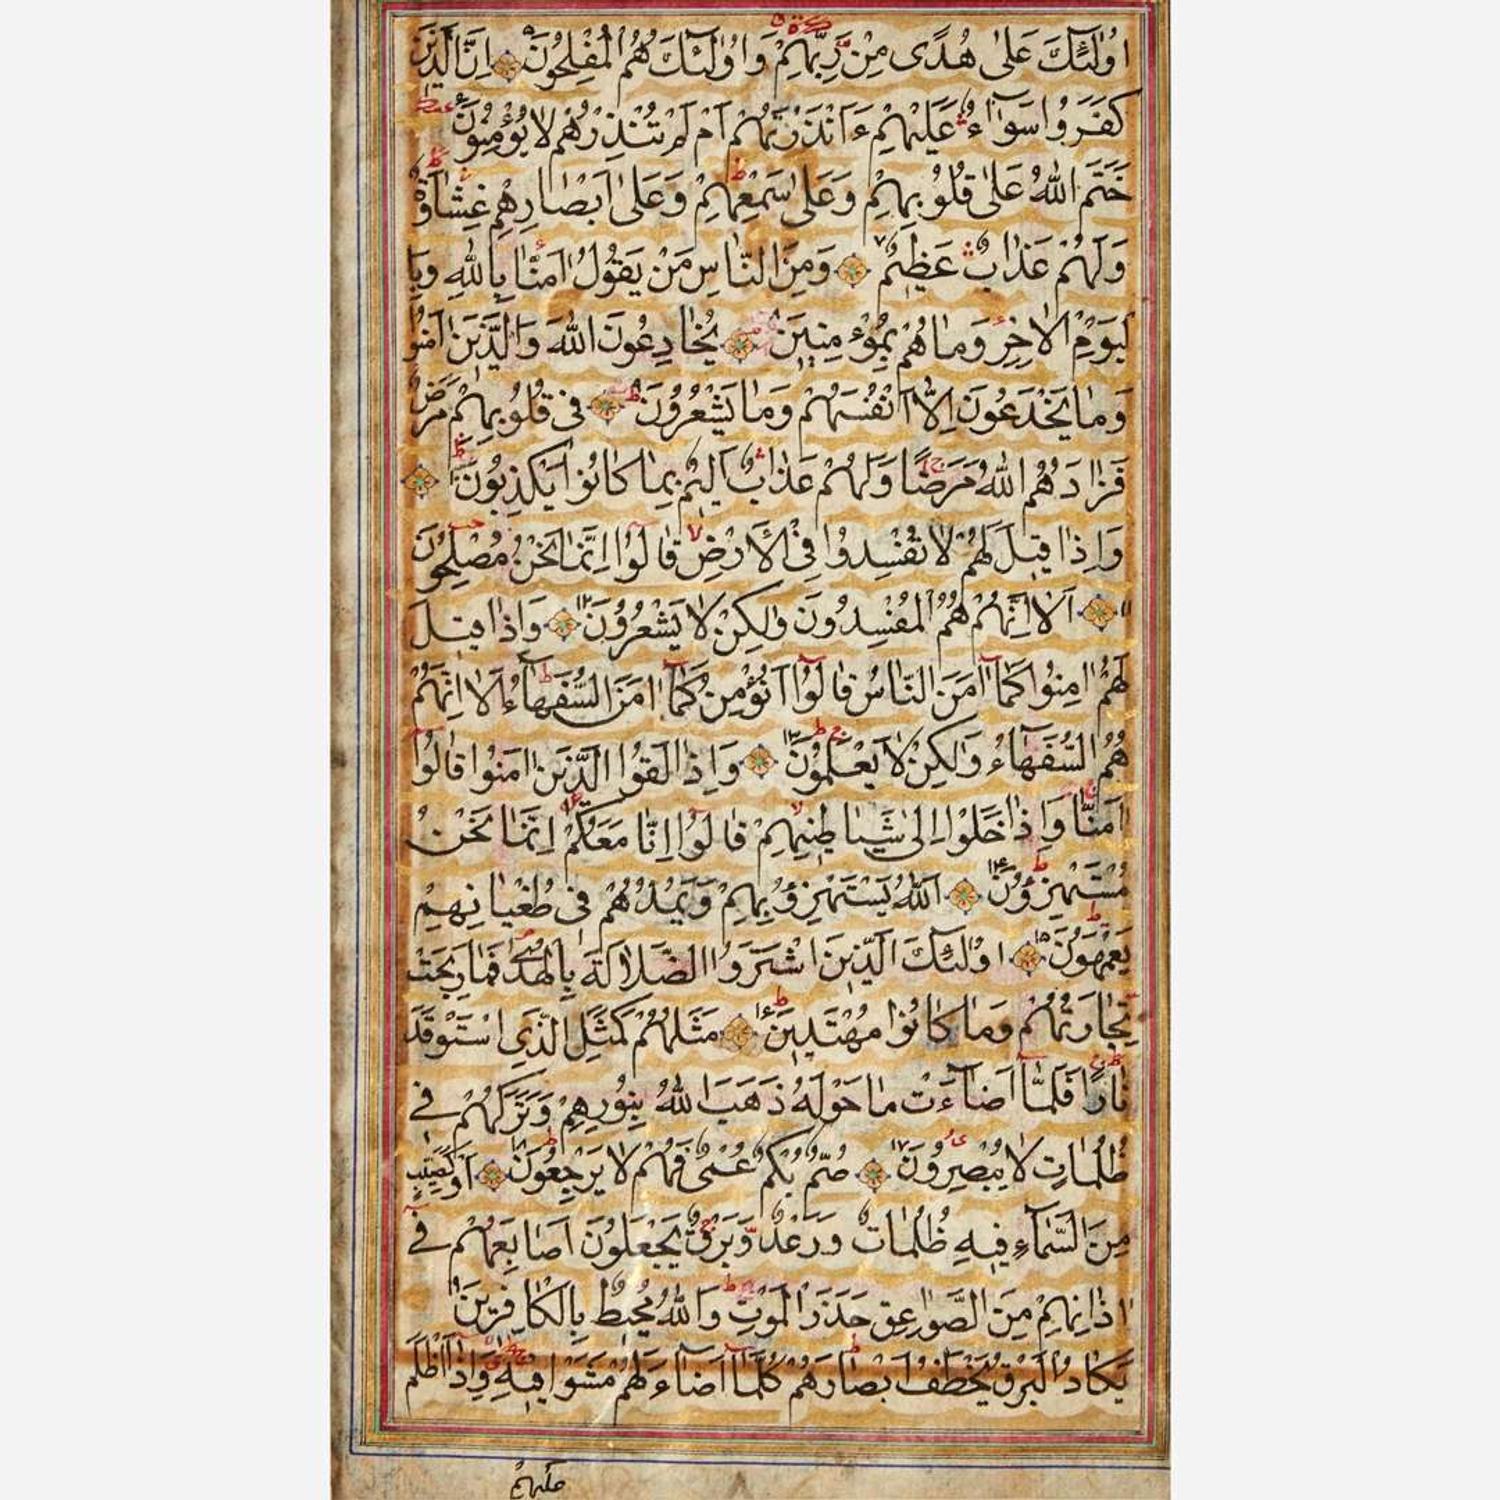 اُولٰئِكَ عَلىٰ هُدًى مِنْ رَبِّهِمْ وَاُولٰئِكَ هُمُ الْمُفْلِحُونَ ۵ اِنَّ الَّذِينَ
كَفَرُوا سَوَٓاءٌ عَلَيْهِمْ ءَاَنْذَرْتَهُمْ اَمْ لَمْ تُنْذِرْهُمْ لا يُؤْمِنُونَ
خَتَمَ اللّٰهُ عَلىٰ قُلُوبِهِمْ وَعَلىٰ سَمْعِهِمْ وَعَلىٰ اَبْصٰارِهِمْ غِشٰاوَةٌ
وَلَهُمْ عَذٰابٌ عَظِيمٌ ۷ وَمِنَ النّٰاسِ مَنْ يَقُولُ اٰمَنّٰا بِاللّٰهِ وَبِا
لْيَوْمِ الْاٰخِرِ وَمٰا هُمْ بِمُؤْمِنِينَ يُخٰادِعُونَ اللّٰهَ وَالَّذِينَ اٰمَنُوا
وَمٰا يَخْدَعُونَ اِلّٰٓا اَنْفُسَهُمْ وَمٰا يَشْعُرُونَ فِى قُلُوبِهِمْ مَرَضٌ
فَزٰادَهُمُ اللّٰهُ مَرَضًا وَلَهُمْ عَذٰابٌ اَلِيمٌ بِمٰا كٰانُوا يَكْذِبُونَ
وَاِذٰا قِيلَ لَهُمْ لا تُفْسِدُوا فِى الْاَرْضِ قٰالُوٓا اِنَّمٰا نَحْنُ مُصْلِحُونَ
۱۱ اَلٰٓا اِنَّهُمْ هُمُ الْمُفْسِدُونَ وَلٰكِنْ لا يَشْعُرُونَ ۱۲ وَاِذٰا قِيلَ
لَهُمْ اٰمِنُوا كَمٰٓا اٰمَنَ النّٰاسُ قٰالُوٓا اَنُؤْمِنُ كَمٰٓا اٰمَنَ السُّفَهٰٓاءُ اَلٰٓا اِنَّهُمْ
هُمُ السُّفَهٰٓاءُ وَلٰكِنْ لا يَعْلَمُونَ ۱۳ وَاِذٰا لَقُوا الَّذِينَ اٰمَنُوا قٰالُوٓا
اٰمَنّٰا وَاِذٰا خَلَوْا اِلىٰ شَيٰاطِينِهِمْ قٰالُوٓا اِنّٰا مَعَكُمْ اِنَّمٰا نَحْنُ
مُسْتَهْزِؤُنَ ۱۴ اَللّٰهُ يَسْتَهْزِؤُ بِهِمْ وَيَمُدُّهُمْ فِى طُغْيٰانِهِمْ
يَعْمَهُونَ ۱۵ اُولٰئِكَ الَّذِينَ اشْتَرَوُا الضَّلٰالَةَ بِالْهُدىٰ فَمٰا رَبِحَتْ
تِجٰارَتُهُمْ وَمٰا كٰانُوا مُهْتَدِينَ ۱۶ مَثَلُهُمْ كَمَثَلِ الَّذِى اسْتَوْقَدَ
نٰارًا فَلَمّٰٓا اَضٰٓاءَتْ مٰا حَوْلَهُ ذَهَبَ اللّٰهُ بِنُورِهِمْ وَتَرَكَهُمْ فِى
ظُلُمٰاتٍ لا يُبْصِرُونَ ۱۷ صُمٌّ بُكْمٌ عُمْىٌ فَهُمْ لا يَرْجِعُونَ ۱۸ اَوْ كَصَيِّبٍ
مِنَ السَّمٰٓاءِ فِيهِ ظُلُمٰاتٌ وَرَعْدٌ وَبَرْقٌ يَجْعَلُونَ اَصٰابِعَهُمْ فِى
اٰذٰانِهِمْ مِنَ الصَّوٰاعِقِ حَذَرَ الْمَوْتِ وَاللّٰهُ مُحِيطٌ بِالْكٰافِرِينَ ۱۹
يَكٰادُ الْبَرْقُ يَخْطَفُ اَبْصٰارَهُمْ كُلَّمٰٓا اَضٰٓاءَ لَهُمْ مَشَوْا فِيهِ وَاِذٰٓا اَظْلَمَ
عليهم